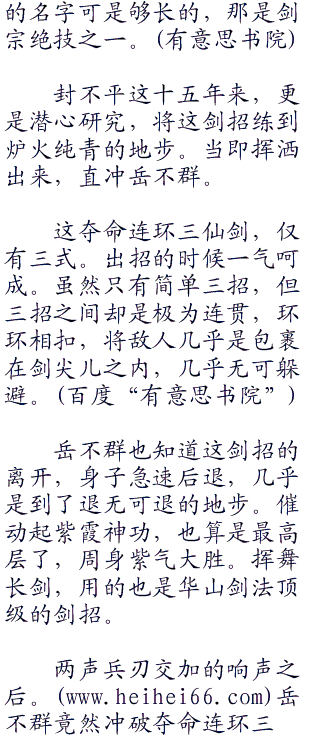 的名字可是够长的，那是剑
宗绝技之一。(有意思书院)
封不平这十五年来，更
是潜心研究，将这剑招练到
炉火纯青的地步。当即挥洒
出来，直冲岳不群。
这夺命连环三仙剑，仅
有三式。出招的时候一气呵
成。虽然只有简单三招，但
三招之间却是极为连贯，环
环相扣，将敌人几乎是包裹
在剑尖儿之内，几乎无可躲
避。(百度“有意思书院”)
岳不群也知道这剑招的
离开，身子急速后退，几乎
是到了退无可退的地步。催
动起紫霞神功，也算是最高
层了，周身紫气大胜。挥舞
长剑，用的也是华山剑法顶
级的剑招。
两声兵刃交加的响声之
后。(www.heihei66.com)岳
不群竟然冲破夺命连环三